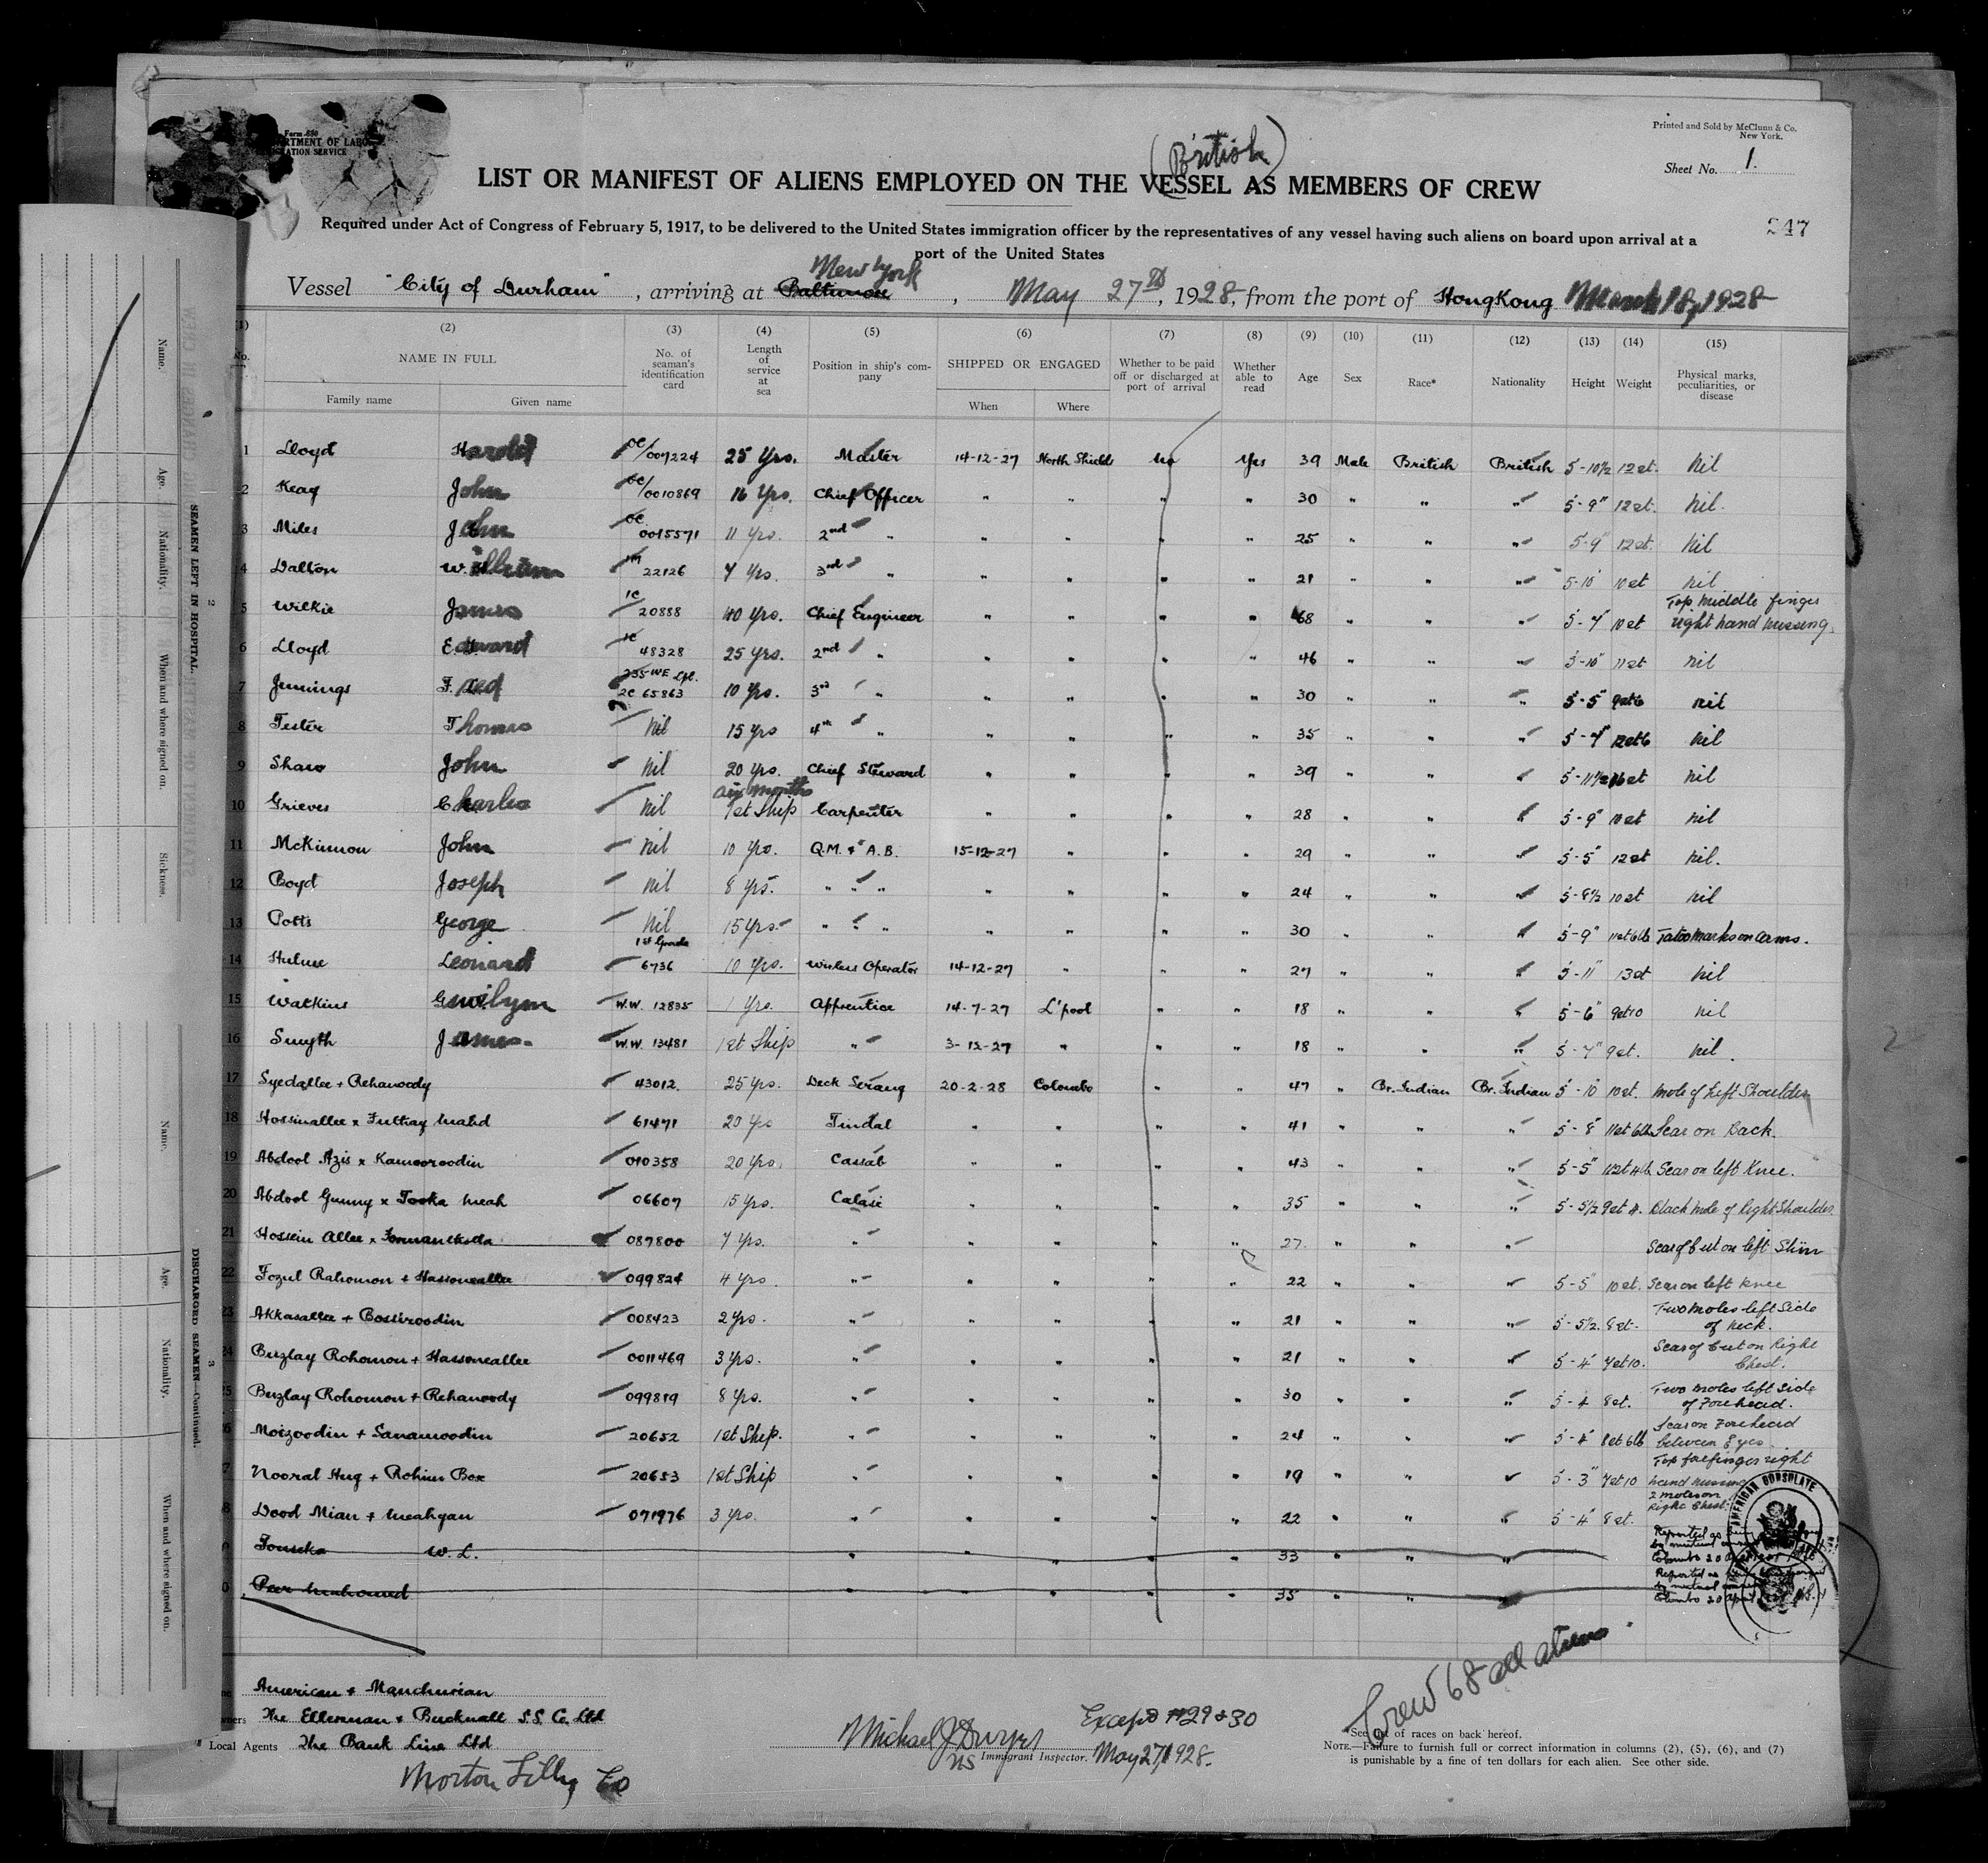 Form 680
DEPARTMENT OF LABOR
IMMIGRATION SERVICE
Printed and Sold by McClunn & Co.
New York.
Sheet No. 1.
(British)
LIST OR MANIFEST OF ALIENS EMPLOYED ON THE VESSEL AS MEMBERS OF CREW
247
Required under Act of Congress of February 5, 1917, to be delivered to the United States immigration officer by the representatives of any vessel having such aliens on board upon arrival at a
port of the United States
New York
Vessel "City of Durham", arriving at Baltimore, May 27th, 1928, from the port of HongKong March 18, 1928
(1) (2) (3) (4) (5) (6) (7) (8) (9) (10) (11) (12) (13) (14) (15)
No. NAME IN FULL No. of seaman's identification card Length of service at sea Position in ship's company SHIPPED OR ENGAGED Whether to be paid off or discharged at port of arrival Whether able to read Age Sex Race* Nationality Height Weight Physical marks, peculiarities, or disease
Family name Given name When Where
1 Lloyd Harold OC/007224 25 Yrs. Master 14-12-27 North Shields No Yes 39 Male British British 5-10½ 12st. Nil
2 Keay John OC/0010869 16 Yrs. Chief Officer " " " " 30 " " " 5-9" 12st. Nil.
3 Miles John OC 0015571 11 Yrs. 2nd " " " " " 25 " " " 5-9" 12st. Nil
4 Dalton William 22126 7 Yrs. 3rd " " " " " 21 " " " 5-10" 10st Nil
5 Wilkie James 1C 20888 40 Yrs. Chief Engineer " " " " 68 " " " 5-7" 10st Top Middle finger right hand missing.
6 Lloyd Edward 1C 48328 25 Yrs. 2nd " " " " " 46 " " " 5-10" 11st Nil
7 Jennings Fred 2C 65863 10 Yrs. 3rd " " " " " 30 " " " 5-5" 9st6 Nil
8 Tester Thomas Nil 15 Yrs 4th " " " " " 35 " " " 5-7" 12st6 Nil
9 Shaw John Nil 20 Yrs. Chief Steward " " " " 39 " " " 5-11½ 16st Nil
six months
10 Grieves Charles Nil 1st Ship Carpenter " " " " 28 " " " 5-9" 10st Nil
11 McKinnon John Nil 10 Yrs. Q.M. & A.B. 15-12-27 " " " 29 " " " 5-5" 12st Nil.
12 Boyd Joseph Nil 8 Yrs. " " " " " " " 24 " " " 5-8½ 10st Nil
13 Potts George Nil 15 Yrs. " " " " " " " 30 " " " 5-9" 11st6lb Tatoo Marks on Arms.
14 Hulme Leonard 1st Grade 6736 10 Yrs. Wireless Operator 14-12-27 " " " 27 " " " 5-11" 13st Nil
15 Watkins Gwilym W.W. 12835 1 Yrs. Apprentice 14-7-27 L'pool " " 18 " " " 5-6" 9st10 Nil
16 Smyth James W.W. 13481 1st Ship " 3-12-27 " " " 18 " " " 5-7" 9st. Nil.
17 Syedallee + Rehanoody 43012. 25 Yrs. Deck Serang 20-2-28 Colombo " " 47 " Br. Indian Br. Indian 5-10 10st. Mole of Left Shoulder
18 Hossinallee x Futtay Mahd 61471 20 Yrs Tindal " " " " 41 " " " 5-8" 11st 6lb Scar on Back.
19 Abdool Azis x Kamooroodin 010358 20 Yrs. Cassab " " " " 43 " " " 5-5" 12st 4lb Scar on left Knee.
20 Abdool Gunny x Tooka Meah 06607 15 Yrs. Calasi " " " " 35 " " " 5-5½ 9st 4. Black Mole of Right Shoulder
21 Hossein Allee x 087800 7 Yrs. " " " " " 27. " " " Scar of Cut on left Shin
22 Fozul Rahomon + Hassoneallee 099824 4 Yrs " " " " " 22 " " " 5-5" 10st. Scar on left Knee
23 Akkasallee + Bossiroodin 008423 2 Yrs. " " " " " 21 " " " 5-5½. 8st. Two Moles left Side of Neck.
24 Buzlay Rohomon + Hassoneallee 0011469 3 Yrs. " " " " " 21 " " " 5-4" 7st10. Scar of Cut on Right Chest.
25 Buzlay Rohomon + Rehanoody 099819 8 Yrs. " " " " " 30 " " " 5-4 8st. Two Moles left Side of Forehead.
26 Moizoodin + Sanamoodin 20652 1st Ship. " " " " " 24 " " " 5-4" 8st 6lb Scar on Forehead between Eyes.
27 Nooral Huq + Rohim Box 20653 1st Ship " " " " " 19 " " 5-3" 7st10 Top forefinger right hand missing
28 Dood Mian + Meahjan 071976 3 Yrs. " " " " " 22 " " " 5-4" 8st. 2 moles on Right Chest.
Fonseka W. L. " " " " " 33 " " " Reported as by mutual Colombo 20
Peer Mahomed " " " " " 35 " " " Reported as by mutual Colombo 20 April
AMERICAN CONSULATE
Crew 68 all aliens
American & Manchurian
Owners The Ellerman & Bucknall S.S. Co. Ltd
Local Agents The Bank Line Ltd
Norton Lilly Co
Except #29 & 30
Michael J Dwyer
Immigrant Inspector. May 27/1928.
*See list of races on back hereof.
NOTE.—Failure to furnish full or correct information in columns (2), (5), (6), and (7)
is punishable by a fine of ten dollars for each alien. See other side.
SEAMEN LEFT IN HOSPITAL.
Name. Age. Nationality. When and where signed on. Sickness.
DISCHARGED SEAMEN—Continued.
Name. Age. Nationality. When and where signed on.